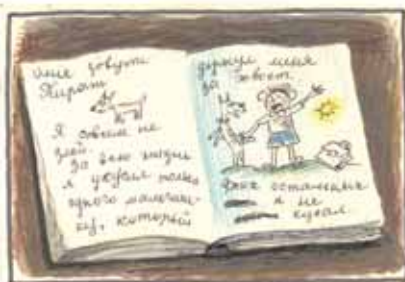 Меня зовут
Пират
Я совсем не
злой.
За всю жизнь
я укусил только
одного мальчиш-
ку, который
дернул меня
за хвост.
остальных
я не
кусал.